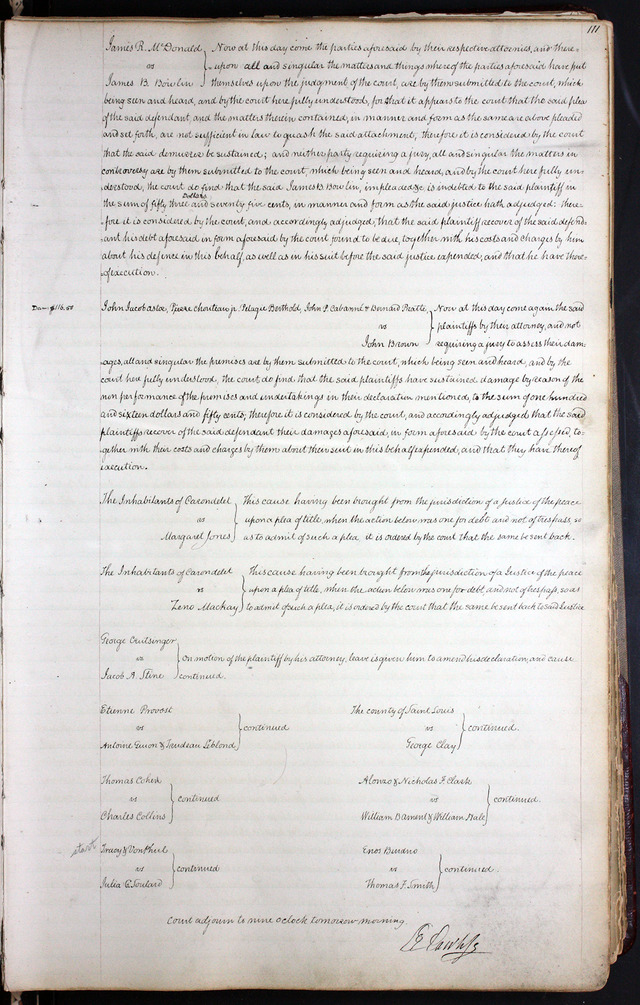 111
James R. McDonald
vs
James B. Bowlin
Now at this day come the parties aforesaid by their respective attornies, and there-
upon all and singular the matters and things whereof the parties aforesaid have put
themselves upon the judgment of the court, are by them submitted to the court, which
being seen and heard, and by the court here fully understood, for that it appears to the court that the said plea
of the said defendant, and the matters therein contained, in manner and form as the same are above pleaded
and set forth, are not sufficient in law to quash the said attachment; therefore it is considered by the court
that the said demurrer be sustained; and neither party requiring a jury, all and singular the matters in
controversy are by them submitted to the court, which being seen and heard, and by the court here fully un-
derstood, the court do find that the said James B. Bowlin, impleaded &c is indebted to the said plaintiff in
the sum of fifty three dollars and seventy five cents, in manner and form as the said justice hath adjudged: there-
fore it is considered by the court, and accordingly adjudged, that the said plaintiff recover of the said defend-
ant his debt aforesaid in form aforesaid by the court found to be due, together with his costs and charges by him
about his defence in this behalf, as well as in his suit before the said justice expended, and that he have there-
of execution.
Dam. $116.50
John Jacob astor, Pierre chouteau jr. Pelagie Berthold, John P. Cabanné & Bernard Pratte
vs
John Brown
Now at this day come again the said
plaintiffs by their attorney, and not
requiring a jury to assess their dam-
ages, all and singular the premises are by them submitted to the court, which being seen and heard, and by the
court here fully understood, the court do find, that the said plaintiffs have sustained damage by reason of the
non performance of the promises and undertakings in their declaration mentioned, to the sum of one hundred
and sixteen dollars and fifty cents; therefore it is considered by the court, and accordingly adjudged that the said
plaintiffs recover of the said defendant their damages aforesaid, in form aforesaid by the court assessed, to-
gether with their costs and charges by them about their suit in this behalf expended, and that they have thereof
execution.
The Inhabitants of Carondelet
vs
Margaret Jones
This cause having been brought from the jurisdiction of a Justice of the peace
upon a plea of title, when the action below was one for debt and not of trespass, so
as to admit of such a plea, it is ordered by the court that the same be sent back.
The Inhabitants of Carondelet
vs
Zeno Mackay
This cause having been brought from the jurisdiction of a Justice of the peace
upon a plea of title, when the action below was one for debt and not of trespass, so as
to admit of such a plea, it is ordered by the court that the same be sent back to said Justice
George Crutsinger
vs
Jacob A. Stine
On motion of the plaintiff by his attorney, leave is given him to amend his declaration, and cause
continued.
Etienne Provost
vs
Antoine & Trudeau Leblond
continued
The county of Saint Louis
vs
George Clay
continued.
Thomas Cohen
vs
Charles Collins
continued
Alonzo & Nicholas F. Clark
vs
William Bament & William Hale
continued.
Tracy & Vonphul
vs
Julia C. Soulard
continued
Enos
vs
Thomas F. Smith
continued.
Court adjourn to nine oclock tomorrow morning